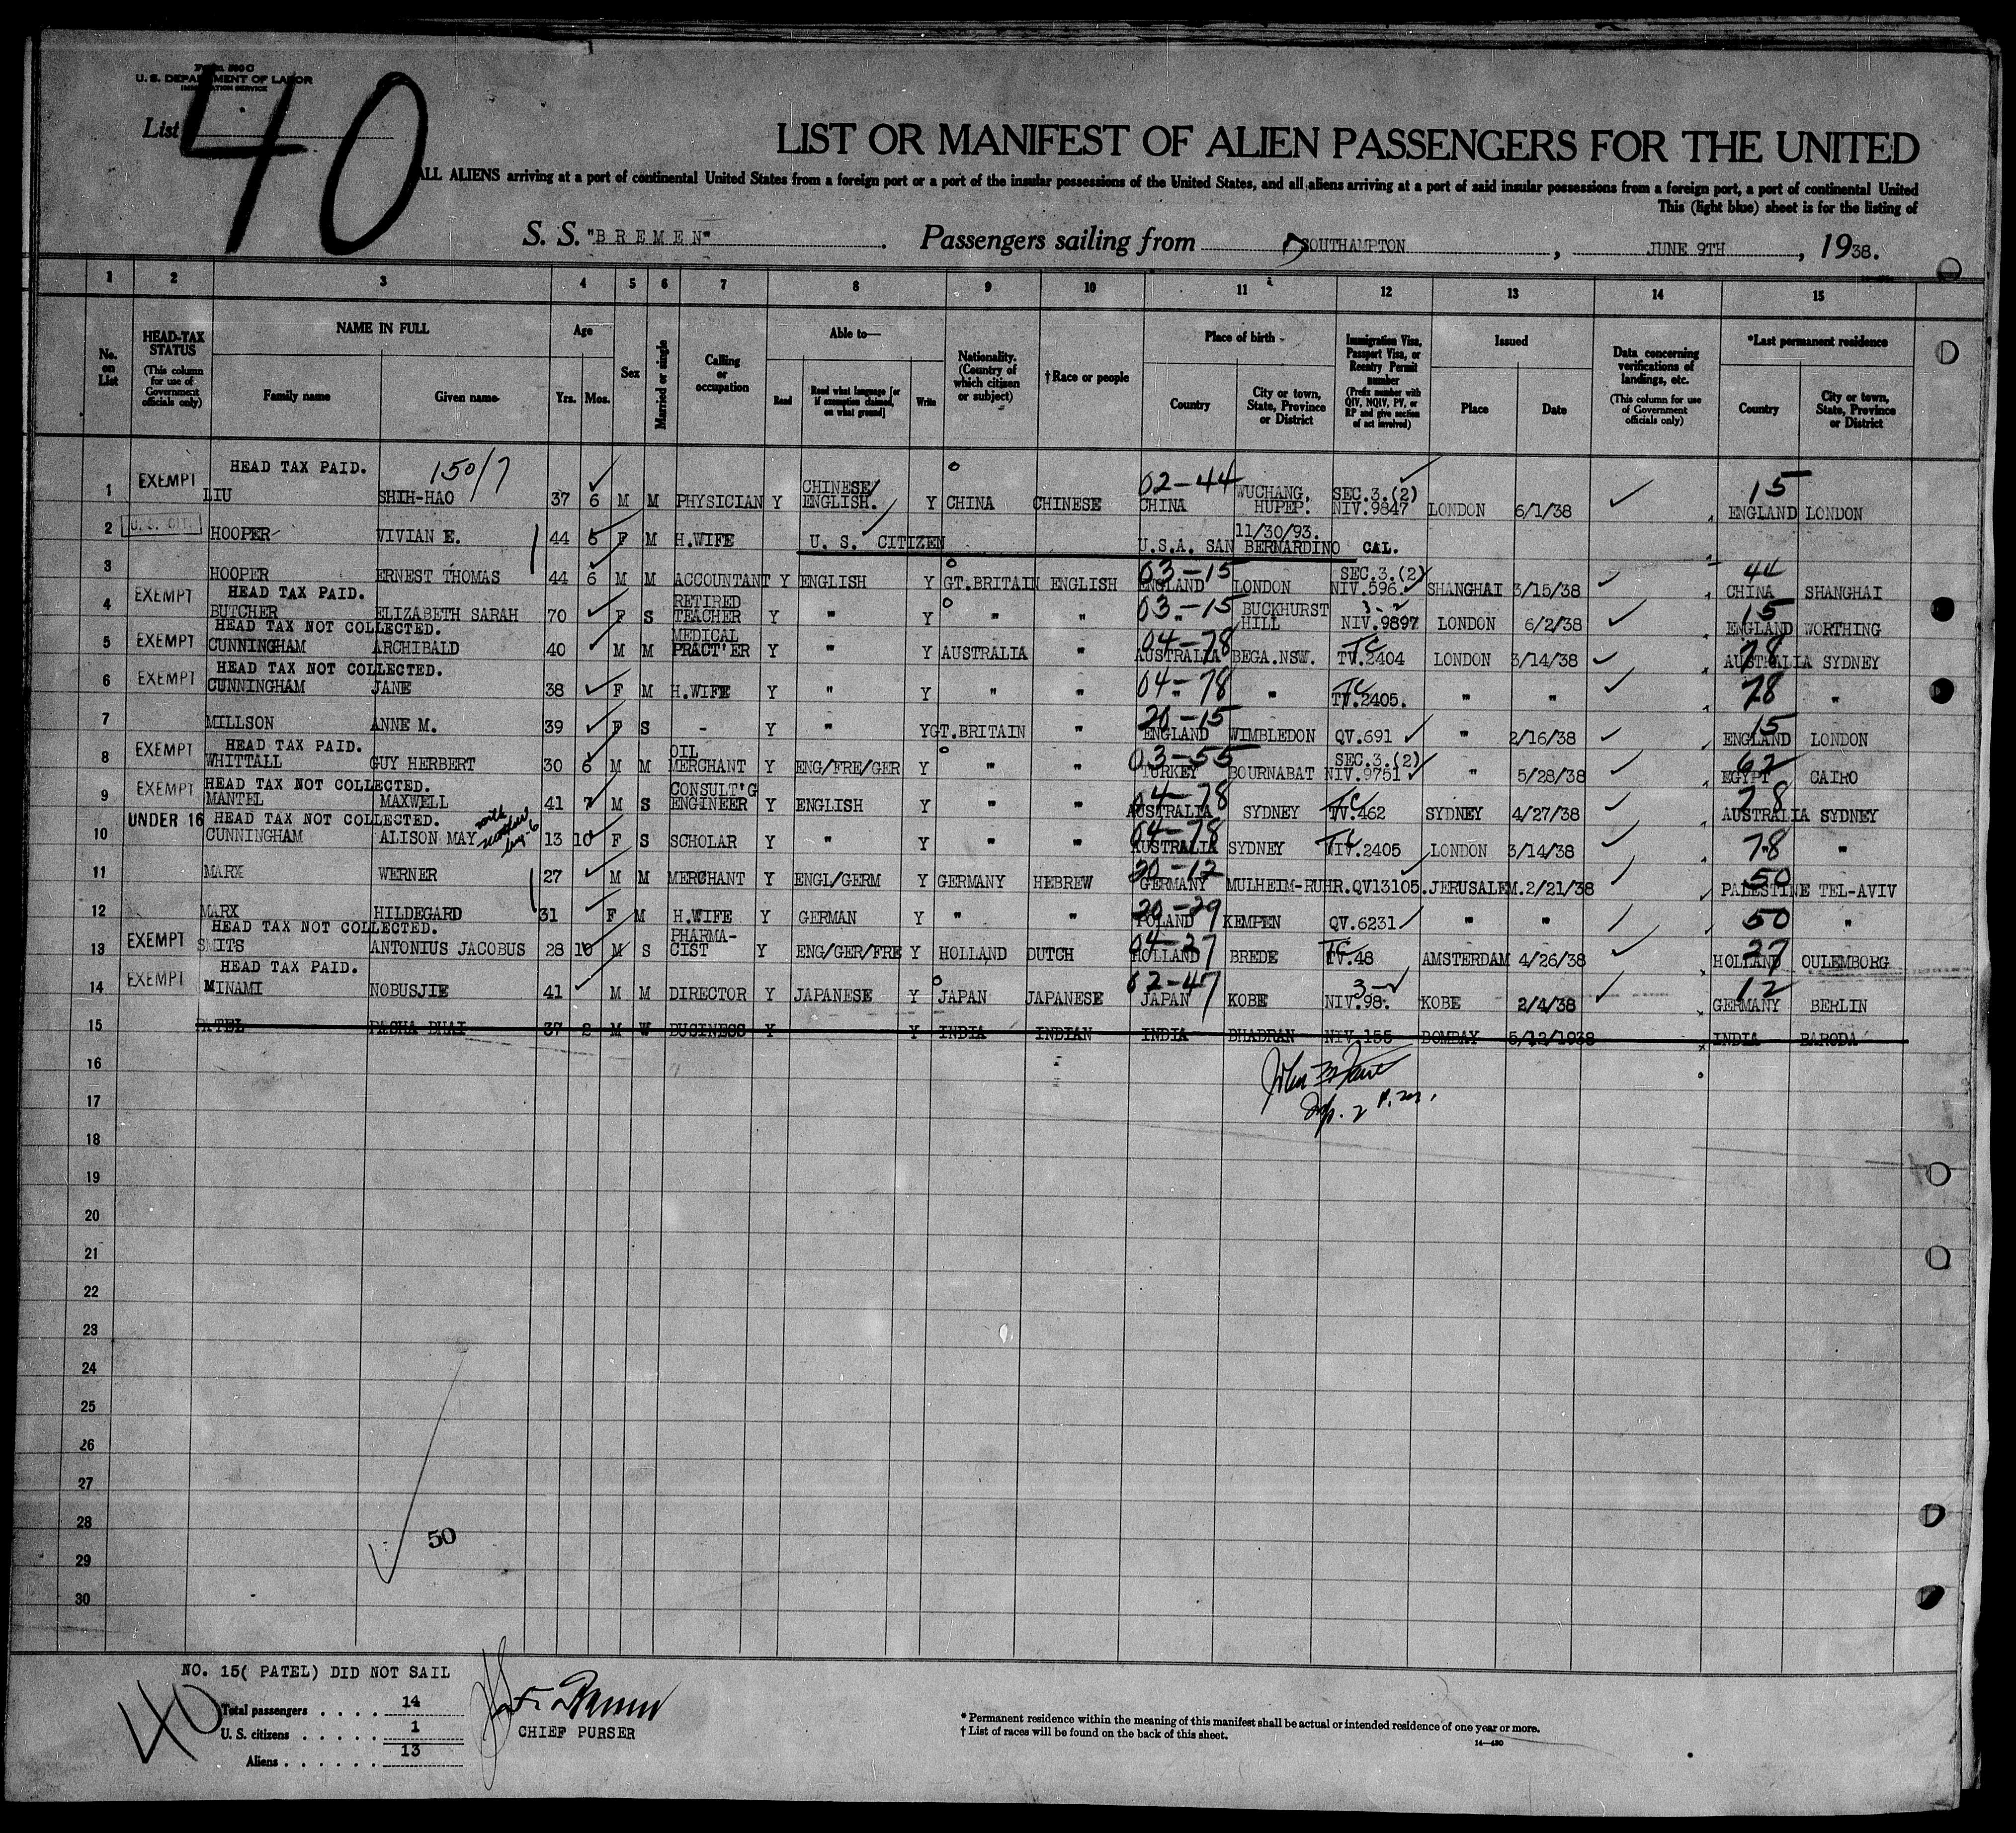 Form 500 C
U. S. DEPARTMENT OF LABOR
IMMIGRATION SERVICE
List 40
LIST OR MANIFEST OF ALIEN PASSENGERS FOR THE UNITED
ALL ALIENS arriving at a port of continental United States from a foreign port or a port of the insular possessions of the United States, and all aliens arriving at a port of said insular possessions from a foreign port, a port of continental United
This (light blue) sheet is for the listing of
S. S. "BREMEN" . Passengers sailing from SOUTHAMPTON , JUNE 9TH , 1938.
1 2 3 4 5 6 7 8 9 10 11 12 13 14 15
No. on List
HEAD-TAX STATUS (This column for use of Government officials only)
NAME IN FULL
Family name Given name
Age
Yrs. Mos.
Sex
Married or single
Calling or occupation
Able to—
Read Read what language [or if exemption claimed, on what ground] Write
Nationality. (Country of which citizen or subject)
†Race or people
Place of birth
Country City or town, State, Province or District
Immigration Visa, Passport Visa, or Reentry Permit number (Prefix number with QIV, NQIV, PV, or RP and give section of act involved)
Issued
Place Date
Data concerning verifications of landings, etc. (This column for use of Government officials only)
*Last permanent residence
Country City or town, State, Province or District
HEAD TAX PAID. 150/7
1 EXEMPT LIU SHIH-HAO 37 6 M M PHYSICIAN Y CHINESE/ ENGLISH. Y CHINA CHINESE 02-44 CHINA WUCHANG, HUPEP. SEC.3.(2) NIV.9847 LONDON 6/1/38 15 ENGLAND LONDON
2 U. S. CIT. HOOPER VIVIAN E. 44 5 F M H.WIFE U. S. CITIZEN 11/30/93. U.S.A. SAN BERNARDINO CAL.
3 HOOPER ERNEST THOMAS 44 6 M M ACCOUNTANT Y ENGLISH Y GT.BRITAIN ENGLISH 03-15 ENGLAND LONDON SEC.3.(2) NIV.596. SHANGHAI 3/15/38 44 CHINA SHANGHAI
HEAD TAX PAID.
4 EXEMPT BUTCHER ELIZABETH SARAH 70 F S RETIRED TEACHER Y " Y " " 03-15 " BUCKHURST HILL 3-2 NIV.9897 LONDON 6/2/38 15 ENGLAND WORTHING
HEAD TAX NOT COLLECTED.
5 EXEMPT CUNNINGHAM ARCHIBALD 40 M M MEDICAL PRACT'ER Y " Y AUSTRALIA " 04-78 AUSTRALIA BEGA.NSW. TC TV.2404 LONDON 3/14/38 78 AUSTRALIA SYDNEY
HEAD TAX NOT COLLECTED.
6 EXEMPT CUNNINGHAM JANE 38 F M H.WIFE Y " Y " " 04-78 " " TC TV.2405. " " 78 "
7 MILLSON ANNE M. 39 F S - Y " Y GT.BRITAIN " 20-15 ENGLAND WIMBLEDON QV.691 " 2/16/38 15 ENGLAND LONDON
HEAD TAX PAID.
8 EXEMPT WHITTALL GUY HERBERT 30 6 M M OIL MERCHANT Y ENG/FRE/GER Y " " 03-55 TURKEY BOURNABAT SEC.3.(2) NIV.9751 " 5/28/38 62 EGYPT CAIRO
HEAD TAX NOT COLLECTED.
9 EXEMPT MANTEL MAXWELL 41 7 M S CONSULT'G ENGINEER Y ENGLISH Y " " 04-78 AUSTRALIA SYDNEY TC TV.462 SYDNEY 4/27/38 78 AUSTRALIA SYDNEY
UNDER 16 HEAD TAX NOT COLLECTED.
10 CUNNINGHAM ALISON MAY 13 10 F S SCHOLAR Y " Y " " 04-78 AUSTRALIA SYDNEY TC 2405 LONDON 3/14/38 78 " "
11 MARX WERNER 27 M M MERCHANT Y ENGL/GERM Y GERMANY HEBREW 20-12 GERMANY MULHEIM-RUHR. QV13105. JERUSALEM. 2/21/38 50 PALESTINE TEL-AVIV
12 MARX HILDEGARD 31 F M H.WIFE Y GERMAN Y " " 20-29 POLAND KEMPEN QV.6231 " " 50 "
HEAD TAX NOT COLLECTED.
13 EXEMPT SMITS ANTONIUS JACOBUS 28 10 M S PHARMA-CIST Y ENG/GER/FRE Y HOLLAND DUTCH 04-27 HOLLAND BREDE TC TV.48 AMSTERDAM 4/26/38 27 HOLLAND OULEMBORG
HEAD TAX PAID.
14 EXEMPT MINAMI NOBUSJIE 41 M M DIRECTOR Y JAPANESE Y JAPAN JAPANESE 02-47 JAPAN KOBE 3-2 NIV.98. KOBE 2/4/38 12 GERMANY BERLIN
15 PATEL PACHA BHAI 37 2 M W BUSINESS Y Y INDIA INDIAN INDIA BHADRAN NIV.155 BOMBAY 5/12/1938 INDIA BARODA
16
17
18
19
20
21
22
23
24
25
26
27
28
29
30
50
NO. 15( PATEL) DID NOT SAIL
40
Total passengers . . . . 14
U. S. citizens . . . . . 1
Aliens . . . . . . 13
CHIEF PURSER
* Permanent residence within the meaning of this manifest shall be actual or intended residence of one year or more.
† List of races will be found on the back of this sheet.
14—430